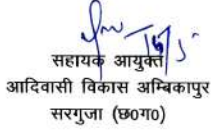 सहायक आयुक्त
आदिवासी विकास अम्बिकापुर
सरगुजा (छ०ग०)